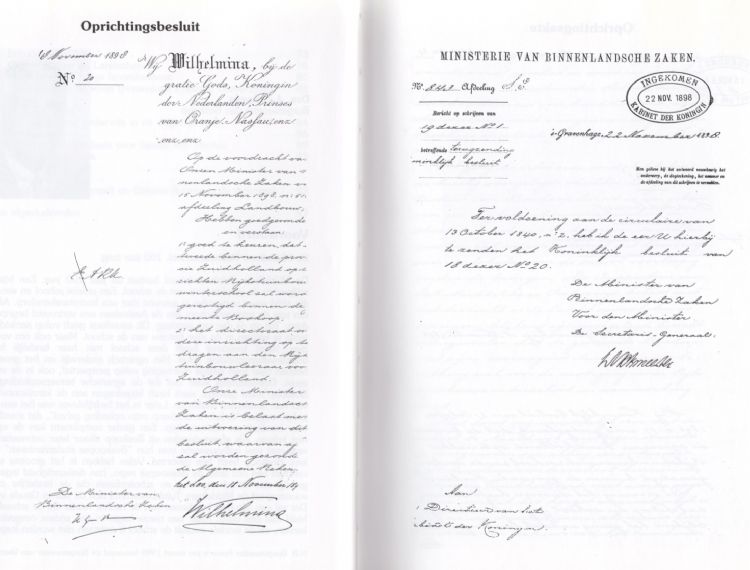 Oprichtingsbesluit
18 November 1898
No. 20
Wij Wilhelmina, bij de
gratie Gods, Koningin
der Nederlanden, Prinses
van Oranje-Nassau, enz
enz. enz.
Op de voordracht va
Onzen Minister van
nenlandsche Zaken v
15 November 1898, no.
afdeeling Landbouw,
Hebben goedgevonde
en verstaan:
1o. goed te keuren, dat
tweede binnen de pro
cie Zuidholland op
richten Rijkstuinbouw
winterschool zal word
gevestigd binnen de
meente Boskoop.
2o. het directoraat
deze inrichting op t
dragen aan den Rijk
tuinbouwleeraar voo
Zuidholland.
Onze Minister
van Binnenlandsc
Zaken is belast me
de uitvoering van dit
besluit, waarvan af
zal worden gezonde
de Algemeene Reken
het Loo, den 18 November 18
Wilhelmina
De Minister van
Binnenlandsche Zaken
MINISTERIE VAN BINNENLANDSCHE ZAKEN.
No. 841 Afdeeling S.G.
INGEKOMEN
22 NOV. 1898
KABINET DER KONINGIN
Bericht op schrijven van
19 dezer No. 1
's-Gravenhage, 22 November 1898.
betreffende terugzending
ninklijk besluit
Men gelieve bij het antwoord nauwkeurig het
onderwerp, de dagteekening, het nummer en
de afdeeling van dit schrijven te vermelden.
Ter voldoening aan de circulaire van
13 October 1840, no. 2, heb ik de eer U hierbij
te zenden het Koninklijk besluit van
18 dezer No. 20.
De Minister van
Binnenlandsche Zaken
Voor den Minister
De Secretaris-Generaal:
Aan
Directeur van het
binet der Koningin.